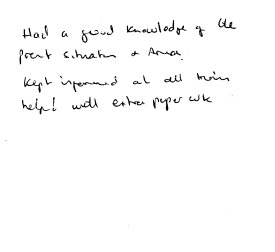 Had a good knowledge of the
prent situation & Area.
Kept informed at all times
help! with extra paper wk